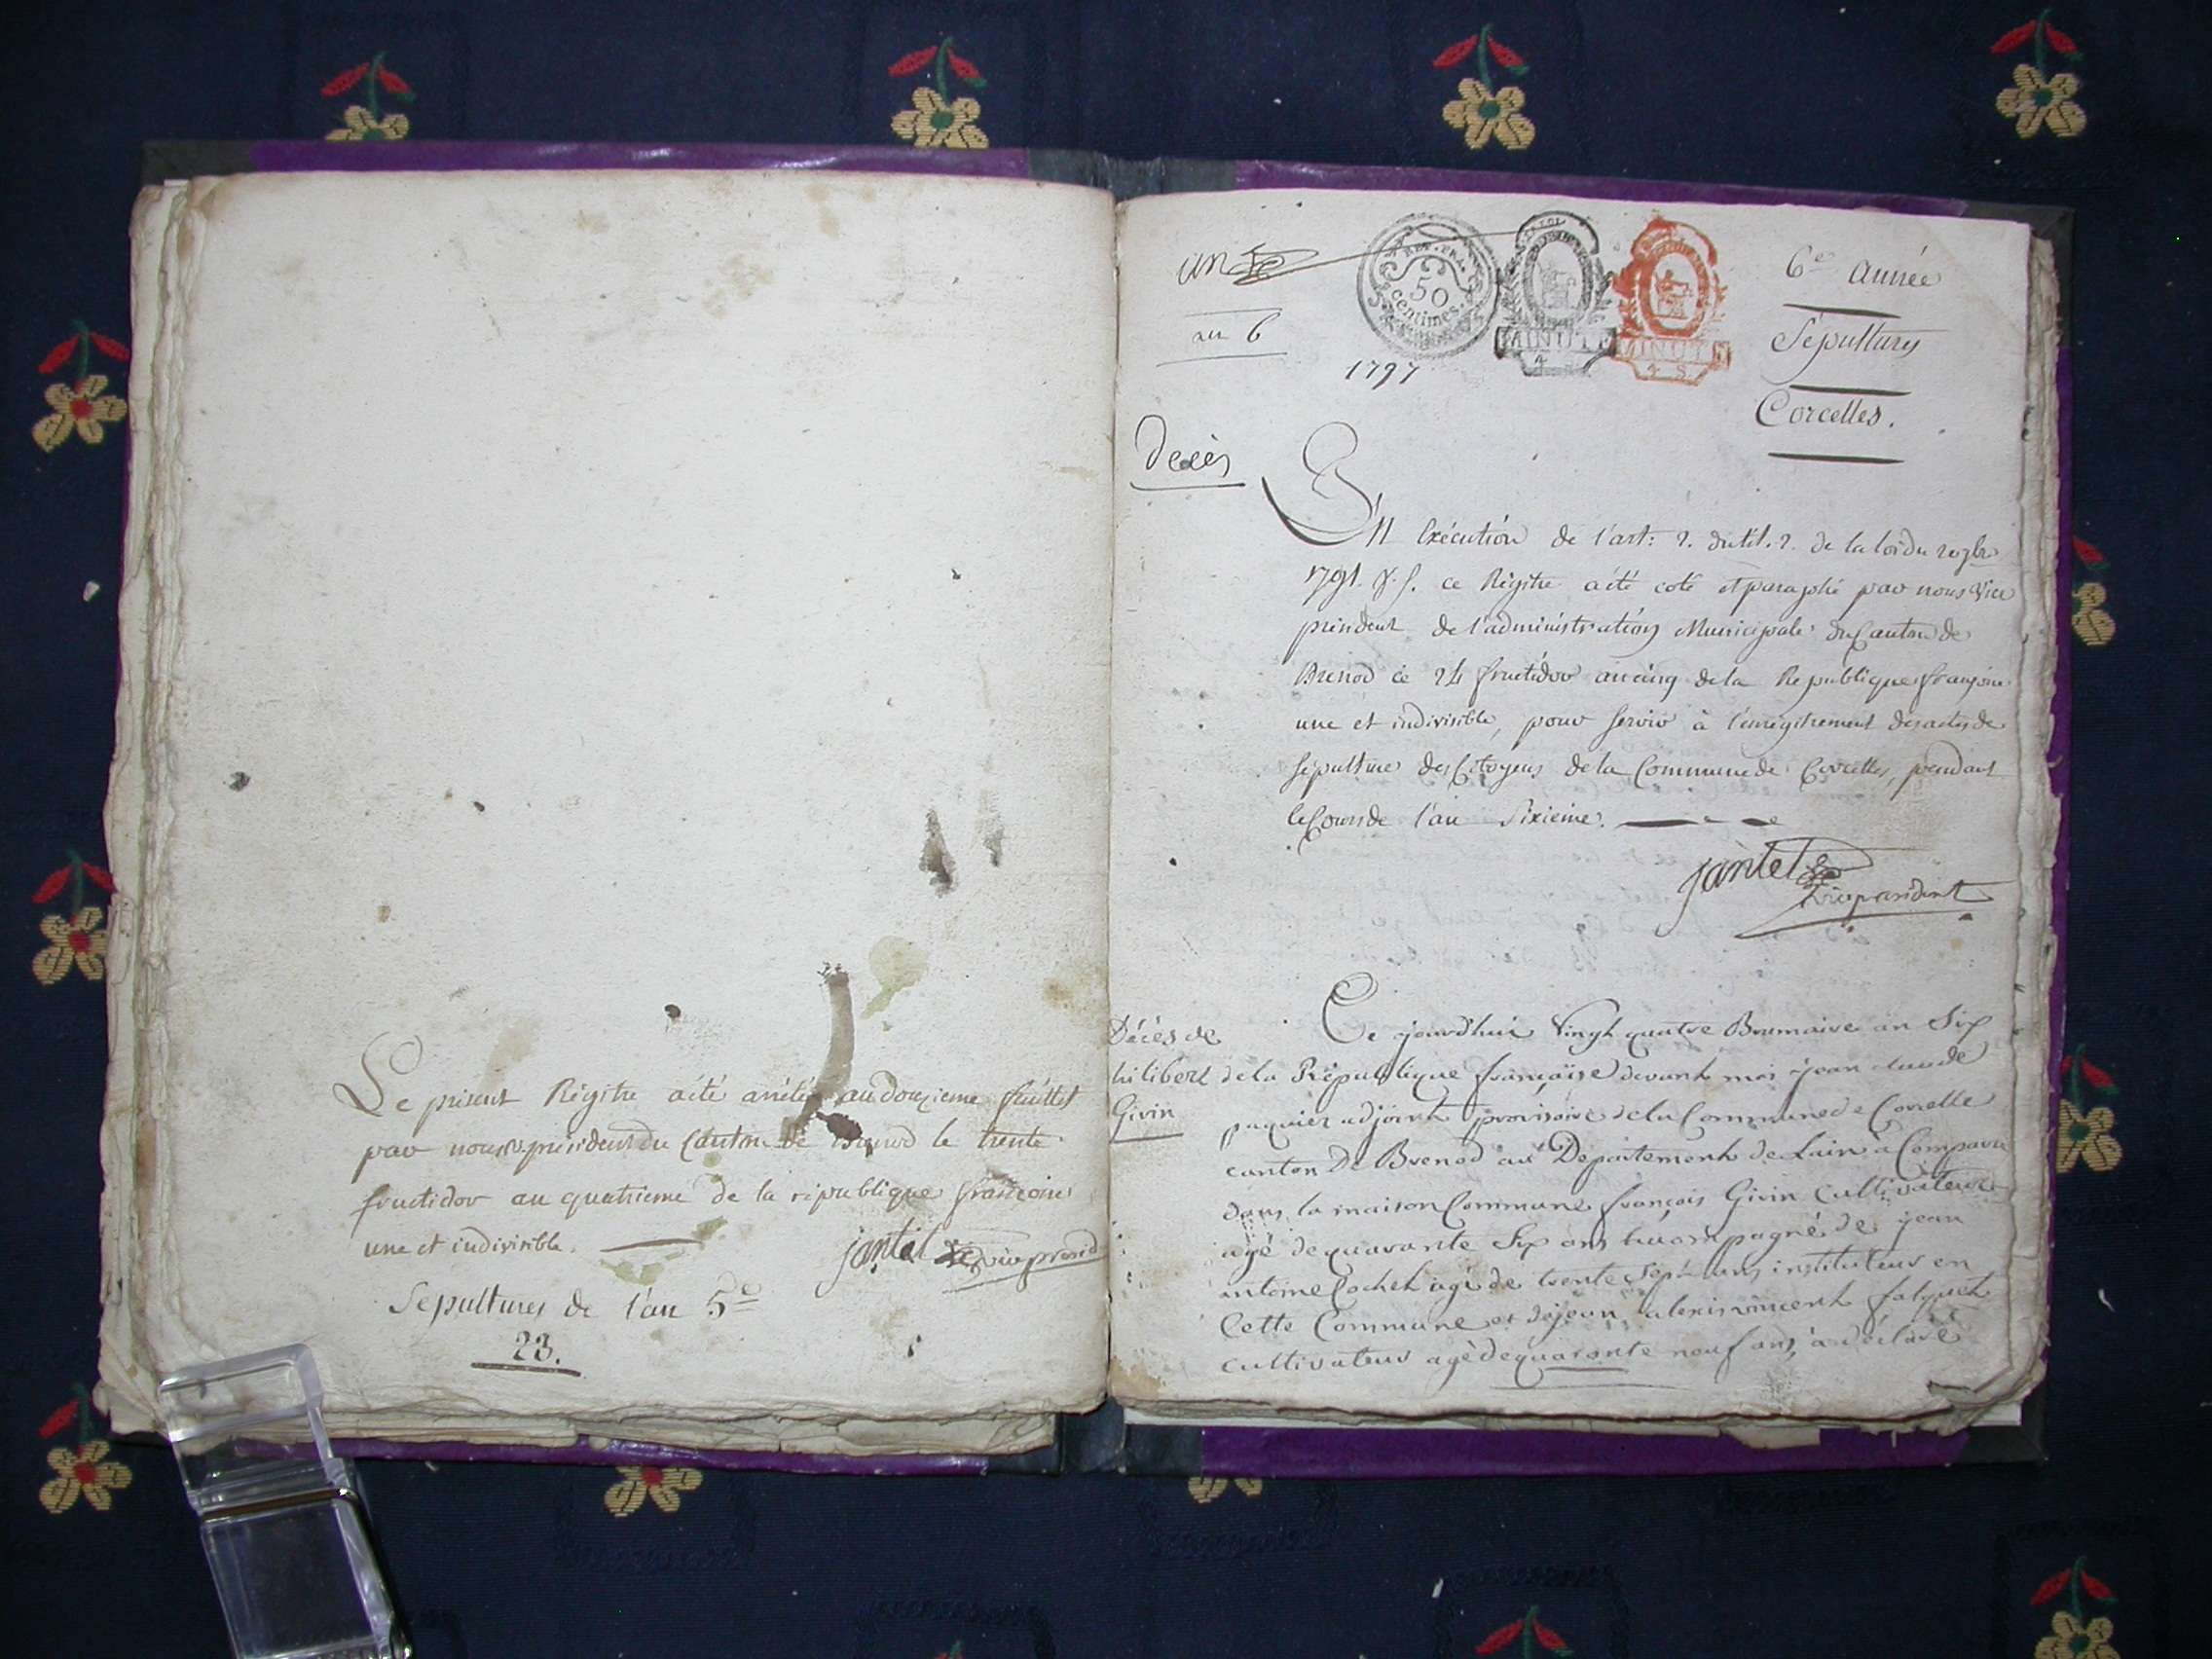 Le présent Régitre a été arrêté au douzieme feuillet
par nous v. président du Canton de Brenod le trente
fructidor an quatrieme de la république françoise
une et indivisible.
jantet vice presid
Sépultures de l'an 5e
23.
un
REP. FRA.
50
centimes
MINUTE
4 S.
MINUTE
4 S.
6e année
an 6
1797
Sépultures
Corcelles.
Décès
En Exécution de l'art: 2. du tit. 2. de la loi du 20 7bre
1791. ce Régitre a été coté et paraphé par nous Vice
président de l'administration Municipale du Canton de
Brenod ce 24 fructidor an cinq de la Republique françoise
une et indivisible, pour servir à l'enregitrement des actes de
sépulture des Citoyens de la Commune de Corcelles, pendant
le Cours de l'an Sixieme.
jantet
vice president
Décès de
hilibert
Givin
Ce jourdhui Vingt quatre Brumaire an Six
de la République française devant moi jean claude
paquier adjoint provisoire de la Commune de Corcelle
canton De Brenod au Departement de Lain a Comparu
dans la maison Commune françois Givin Cultivateur
agé de quarante Six ans accompagné de jean
antoine Cochet agé de trente Sept ans instituteur en
Cette Commune et de jean alexis vincent falquet
cultivateur agé de quarante neuf ans, a déclaré